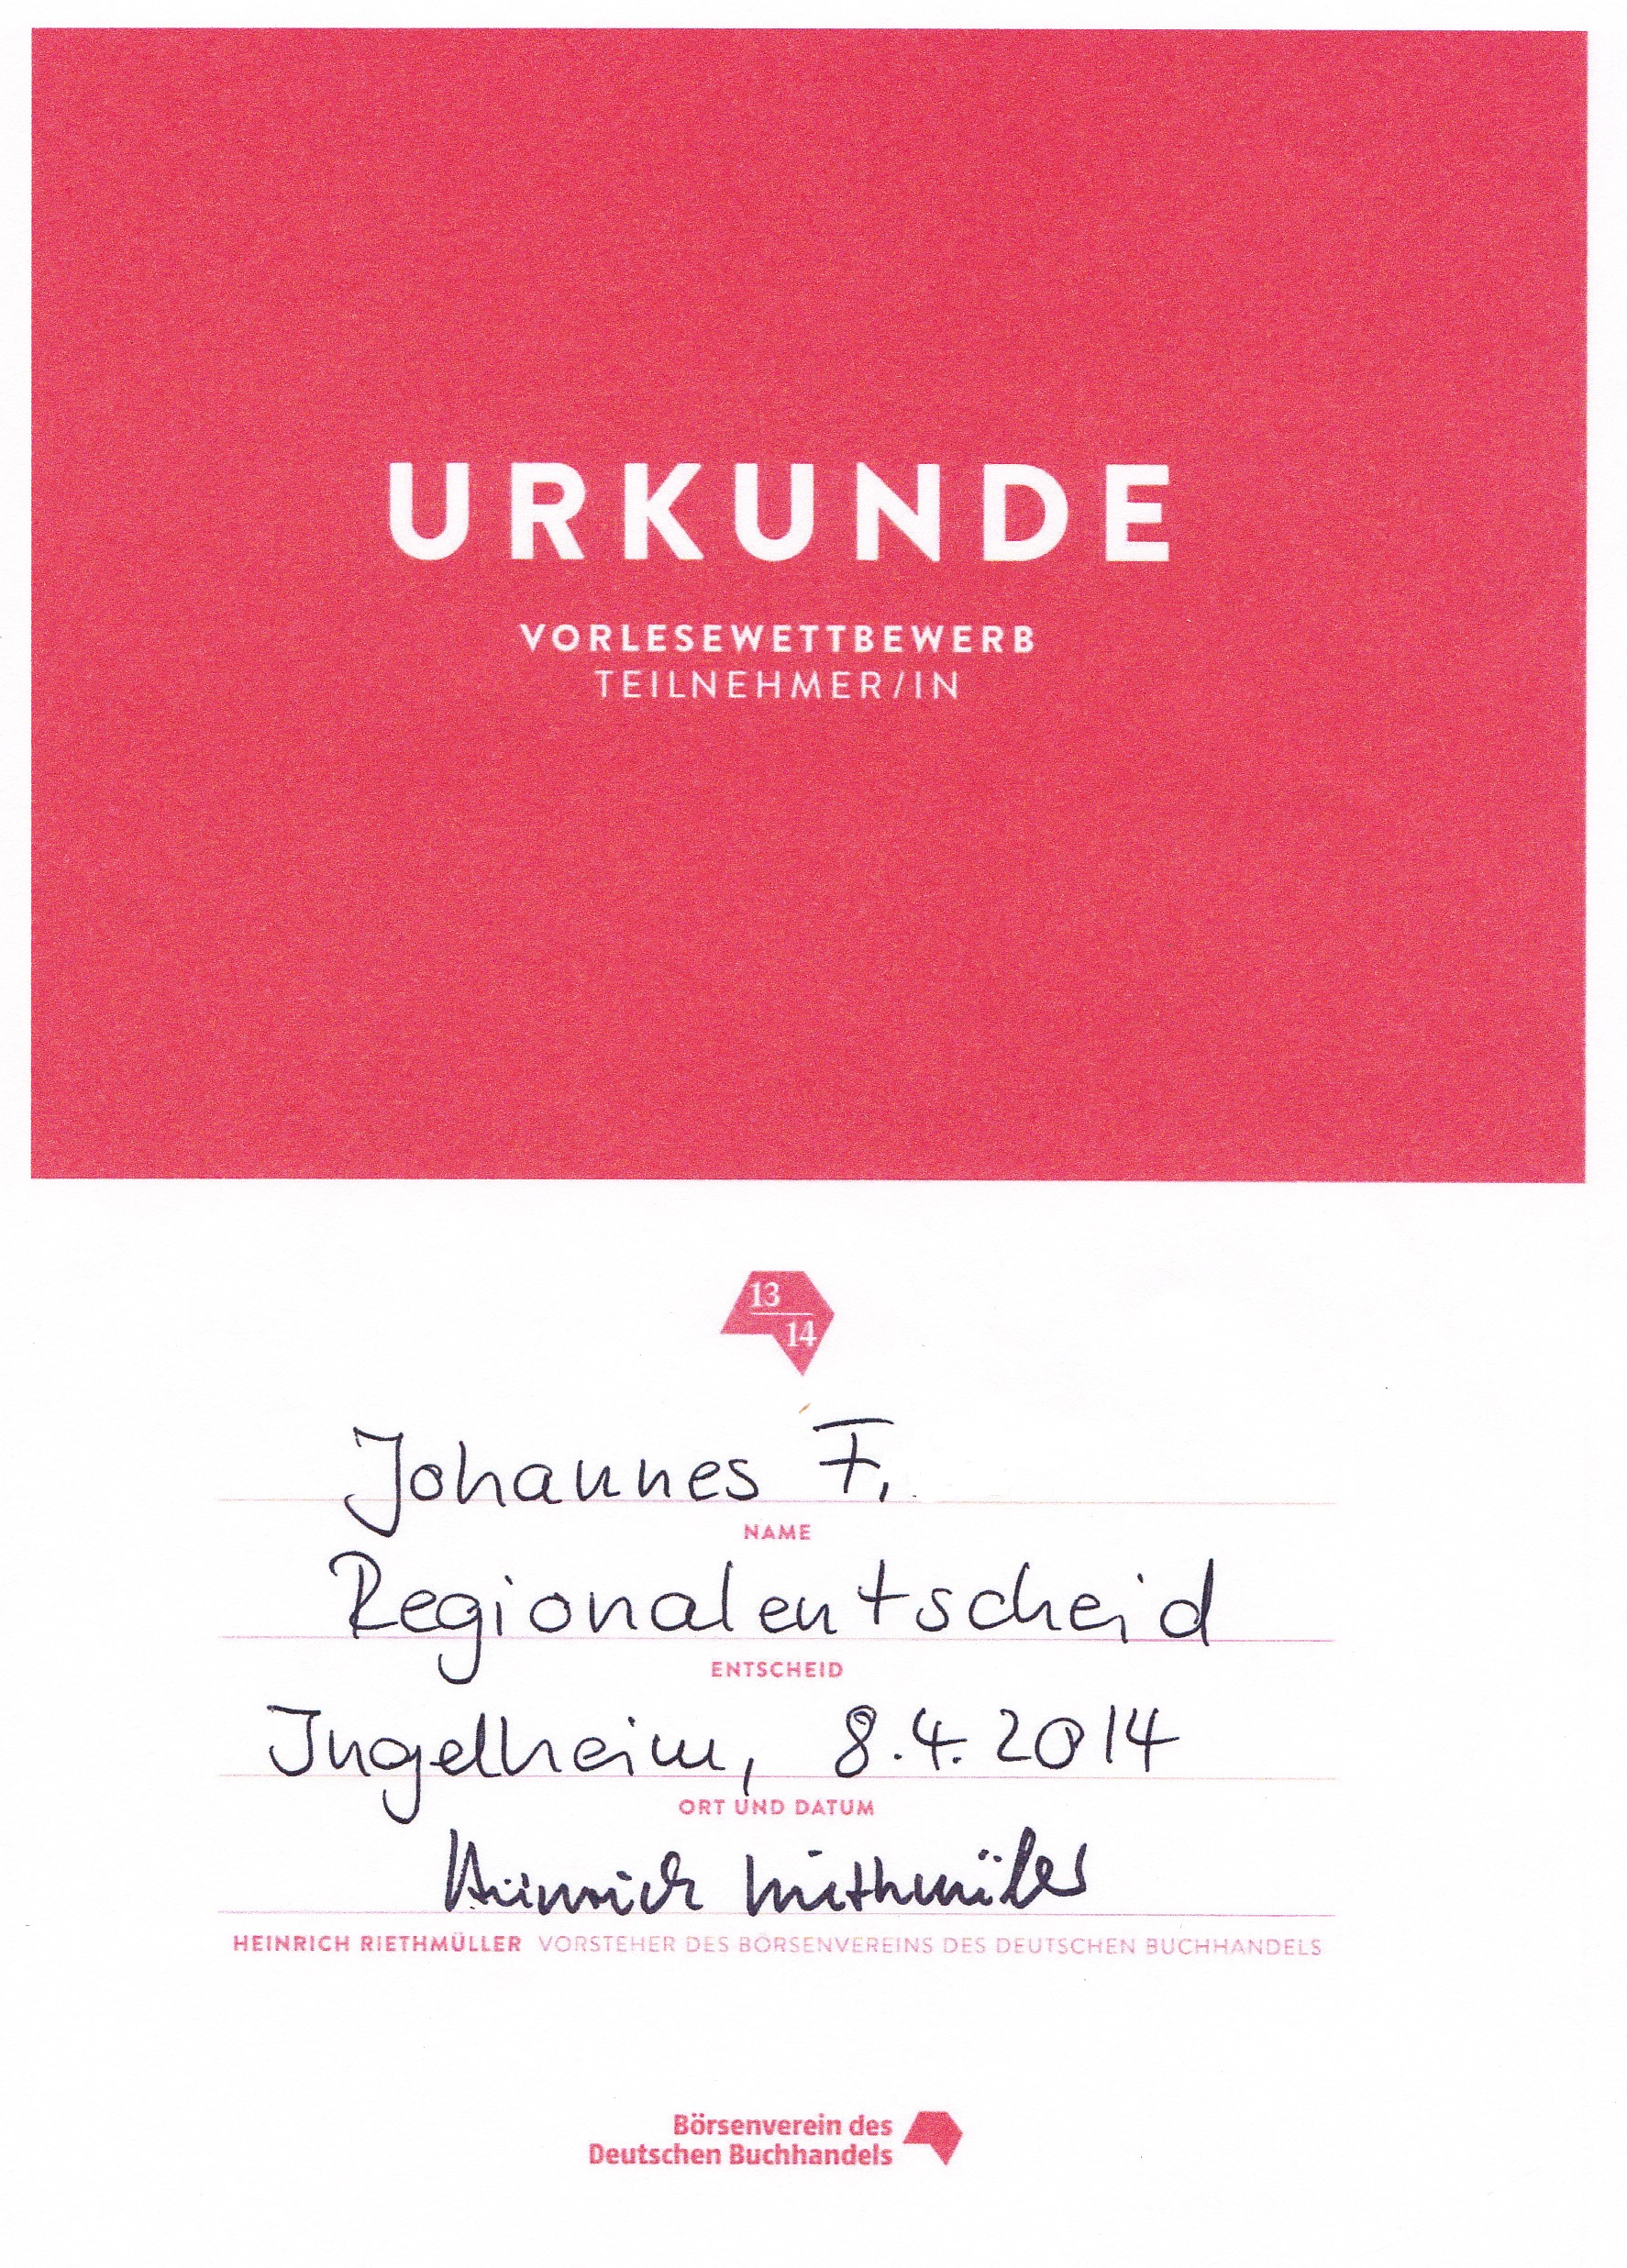 URKUNDE
VORLESEWETTBEWERB
TEILNEHMER/IN
13
14
Johannes F.
NAME
Regionalentscheid
ENTSCHEID
Ingelheim, 8.4.2014
ORT UND DATUM
Heinrich Riethmüller
HEINRICH RIETHMÜLLER VORSTEHER DES BÖRSENVEREINS DES DEUTSCHEN BUCHHANDELS
Börsenverein des
Deutschen Buchhandels